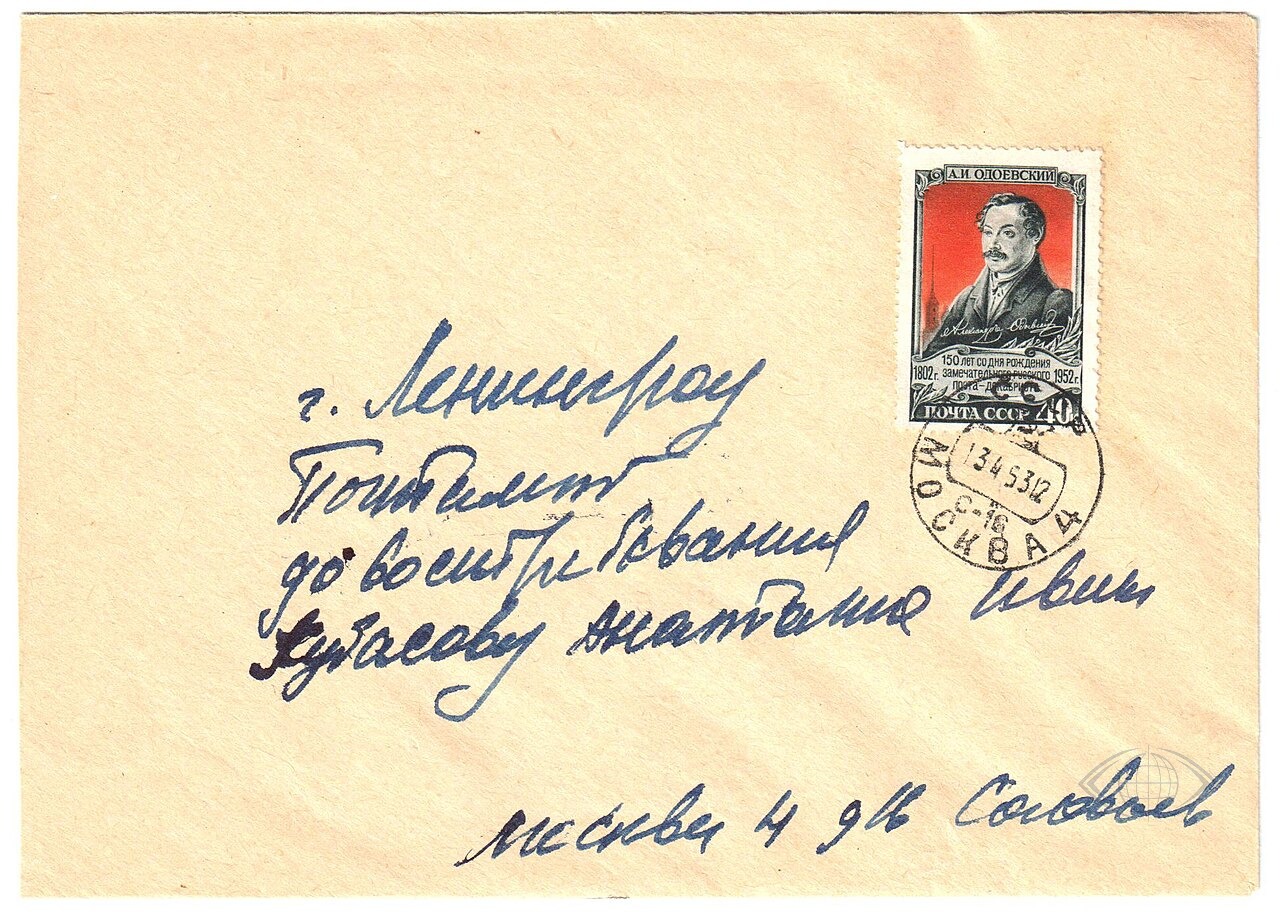 А.И. ОДОЕВСКИЙ
Александръ Одоевский
150 лет со дня рождения
1802 г. замечательного русского 1952 г.
поэта-декабриста
ПОЧТА СССР 40
МОСКВА 4
13 4 53 12
С-16
г. Ленинград
Почтамт
до востребования
Кубасову Анатолию
Москва 4 Соловьев